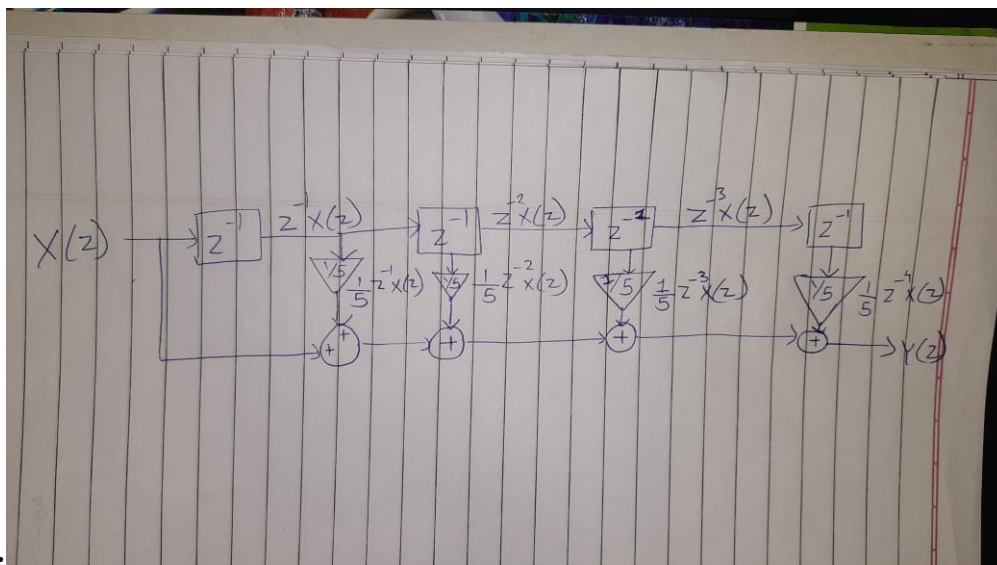 X(z)
z⁻¹
z⁻¹X(z)
z⁻¹
z⁻²X(z)
z⁻¹
z⁻³X(z)
z⁻¹
1/5
1/5 z⁻¹X(z)
1/5
1/5 z⁻²X(z)
1/5
1/5 z⁻³X(z)
1/5
1/5 z⁻⁴X(z)
+ +
+
+
+
Y(z)